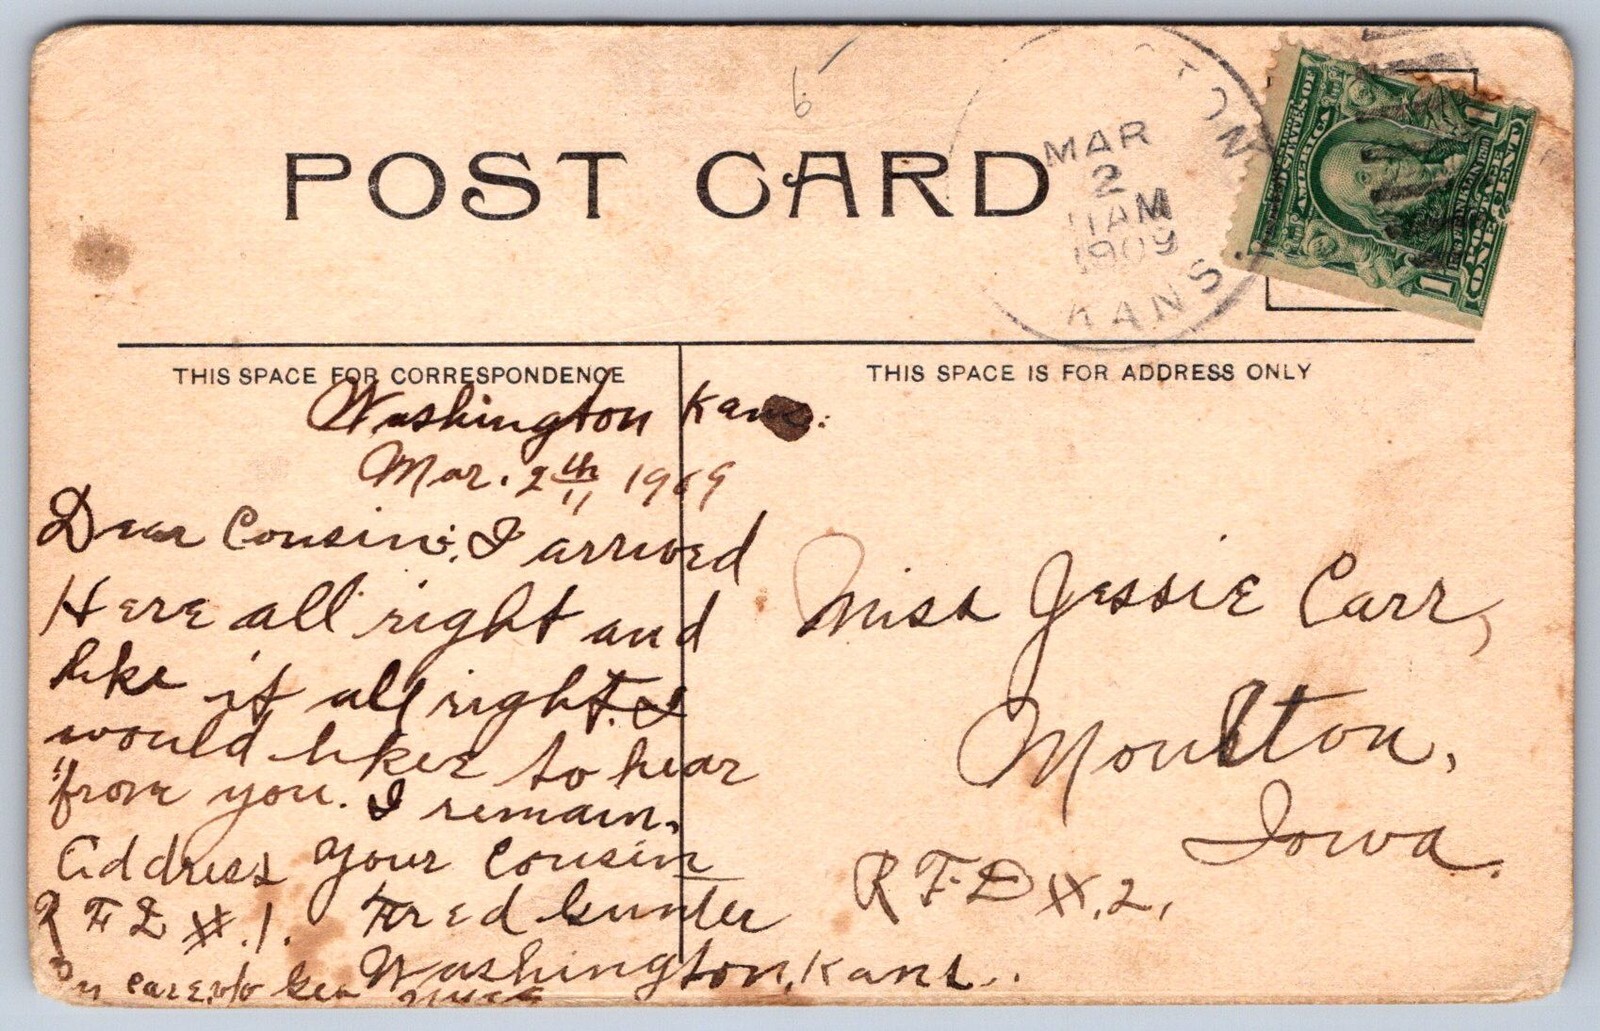 POST CARD
MAR
2
11AM
1909
KANS.
UNITED STATES OF AMERICA
POSTAGE
ONE CENT
1 1
THIS SPACE FOR CORRESPONDENCE
THIS SPACE IS FOR ADDRESS ONLY
Washington Kans.
Mar. 2th 1909
Dear Cousin: I arrived
Here all right and
like it all right. I
would likee to hear
from you. I remain.
Address your Cousin
R F D #.1. Fred Gunter
Washington, Kans.
in care of Geo
Miss Jessie Carr,
Moulton,
Iowa.
R F D #.2.